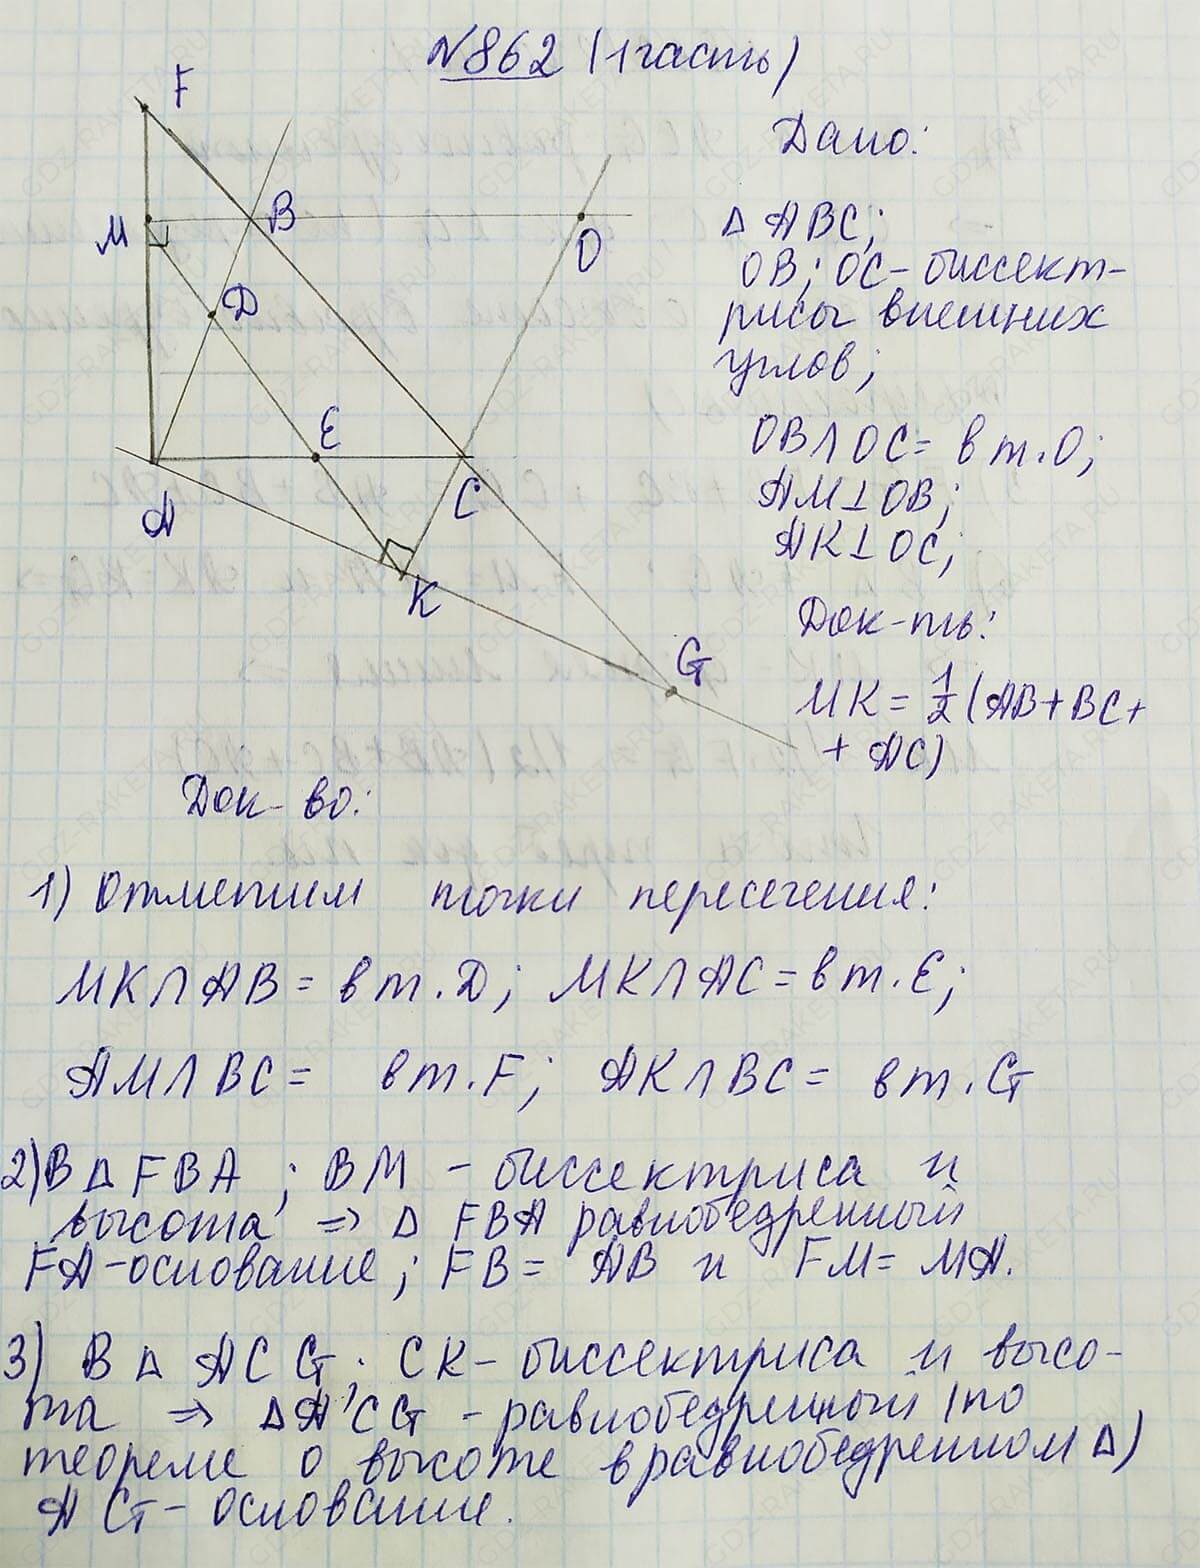 №862 (1 часть)
F
M
B
O
D
E
A
C
K
G
Дано:
△ ABC;
OB; OC - биссект-
рисы внешних
углов;
OB ∩ OC = в т. O;
AM ⊥ OB;
AK ⊥ OC;
Док-ть:
MK = 1/2 (AB + BC +
+ AC)
Док-во:
1) Отметим точки пересечения:
MK ∩ AB = в т. D; MK ∩ AC = в т. E;
AM ∩ BC = в т. F; AK ∩ BC = в т. G
2) В △ FBA; BM - биссектриса и
высота => △ FBA равнобедренный
FA - основание; FB = AB и FM = MA.
3) В △ ACG; CK - биссектриса и высо-
та => △ ACG - равнобедренный (по
теореме о высоте в равнобедренном △)
AG - основание.